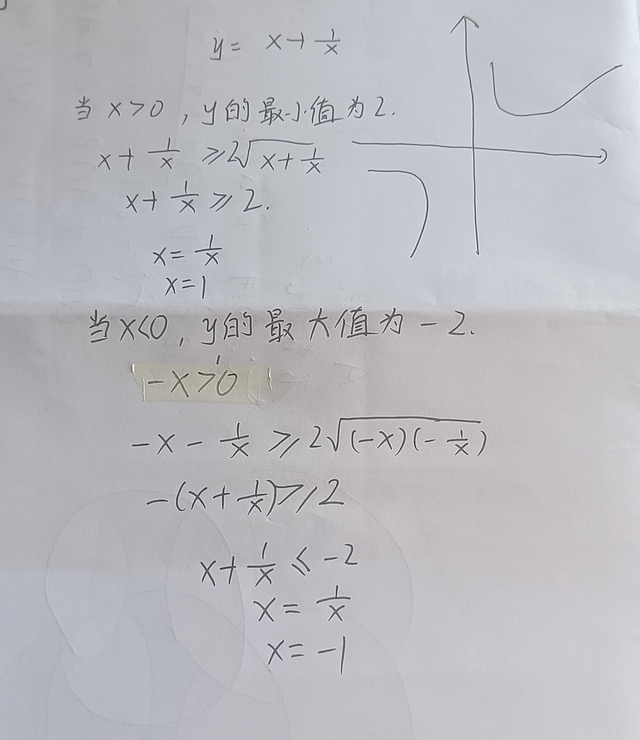 y = x + 1/x
当 x>0 , y的最小值为2.
x + 1/x ≥ 2√(x + 1/x)
x + 1/x ≥ 2.
x = 1/x
x = 1
当x<0 , y的最大值为 -2.
-x>0
-x - 1/x ≥ 2√((-x)(-1/x))
-(x + 1/x) ≥ 2
x + 1/x ≤ -2
x = 1/x
x = -1